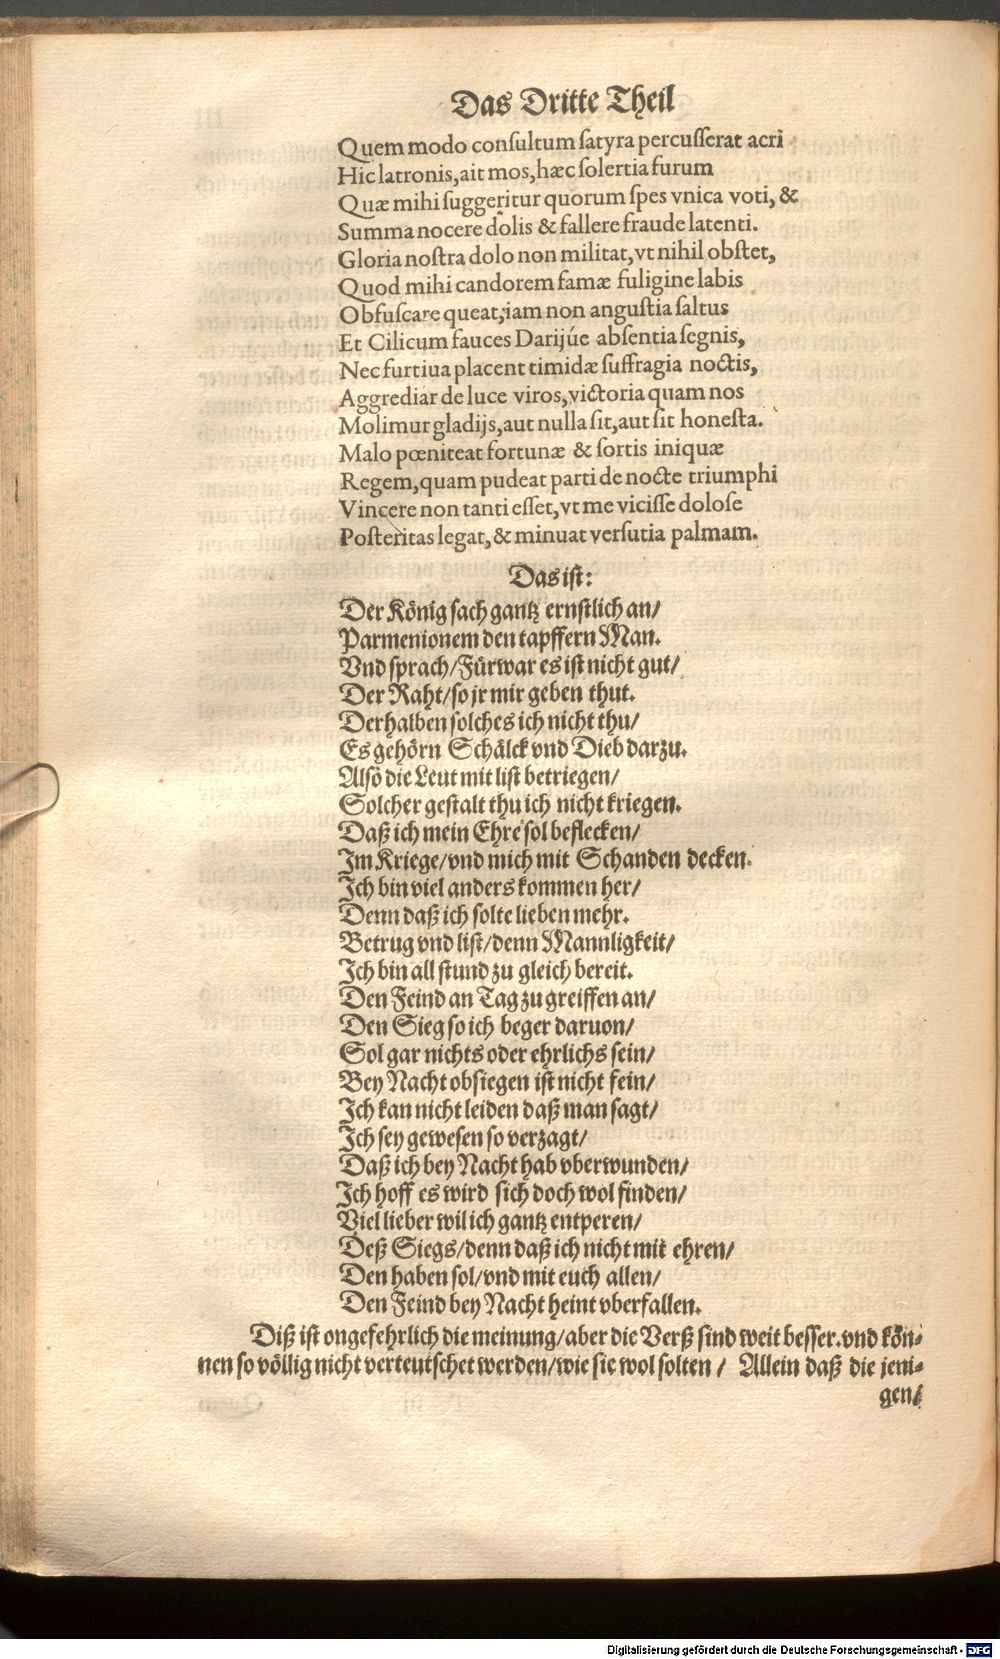 Das Dritte Theil
Quem modo consultum satyra percusserat acri
Hic latronis, ait mos, hæc solertia furum
Quæ mihi suggeritur quorum spes vnica voti, &
Summa nocere dolis & fallere fraude latenti.
Gloria nostra dolo non militat, vt nihil obstet,
Quod mihi candorem famæ fuligine labis
Obfuscare queat, iam non angustia saltus
Et Cilicum fauces Darijúe absentia segnis,
Nec furtiua placent timidæ suffragia noctis,
Aggrediar de luce viros, victoria quam nos
Molimur gladijs, aut nulla sit, aut sit honesta.
Malo pœniteat fortunæ & sortis iniquæ
Regem, quam pudeat parti de nocte triumphi
Vincere non tanti esset, vt me vicisse dolose
Posteritas legat, & minuat versutia palmam.
Das ist:
Der König sach gantz ernstlich an/
Parmenionem den tapffern Man.
Vnd sprach/ Fürwar es ist nicht gut/
Der Raht/ so jr mir geben thut.
Derhalben solches ich nicht thu/
Es gehörn Schälck vnd Dieb darzu.
Also die Leut mit list betriegen/
Solcher gestalt thu ich nicht kriegen.
Daß ich mein Ehre sol beflecken/
Im Kriege/ vnd mich mit Schanden decken.
Ich bin viel anders kommen her/
Denn daß ich solte lieben mehr.
Betrug vnd list/ denn Mannligkeit/
Ich bin all stund zu gleich bereit.
Den Feind an Tag zu greiffen an/
Den Sieg so ich beger daruon/
Sol gar nichts oder ehrlichs sein/
Bey Nacht obsiegen ist nicht fein/
Ich kan nicht leiden daß man sagt/
Ich sey gewesen so verzagt/
Daß ich bey Nacht hab vberwunden/
Ich hoff es wird sich doch wol finden/
Viel lieber wil ich gantz entperen/
Deß Siegs/ denn daß ich nicht mit ehren/
Den haben sol/ vnd mit euch allen/
Den Feind bey Nacht heint vberfallen.
Diß ist ongefehrlich die meinung/ aber die Verß sind weit besser. vnd kön-
nen so völlig nicht verteutschet werden/ wie sie wol solten / Allein daß die jeni-
gen/
Digitalisierung gefördert durch die Deutsche Forschungsgemeinschaft - DFG